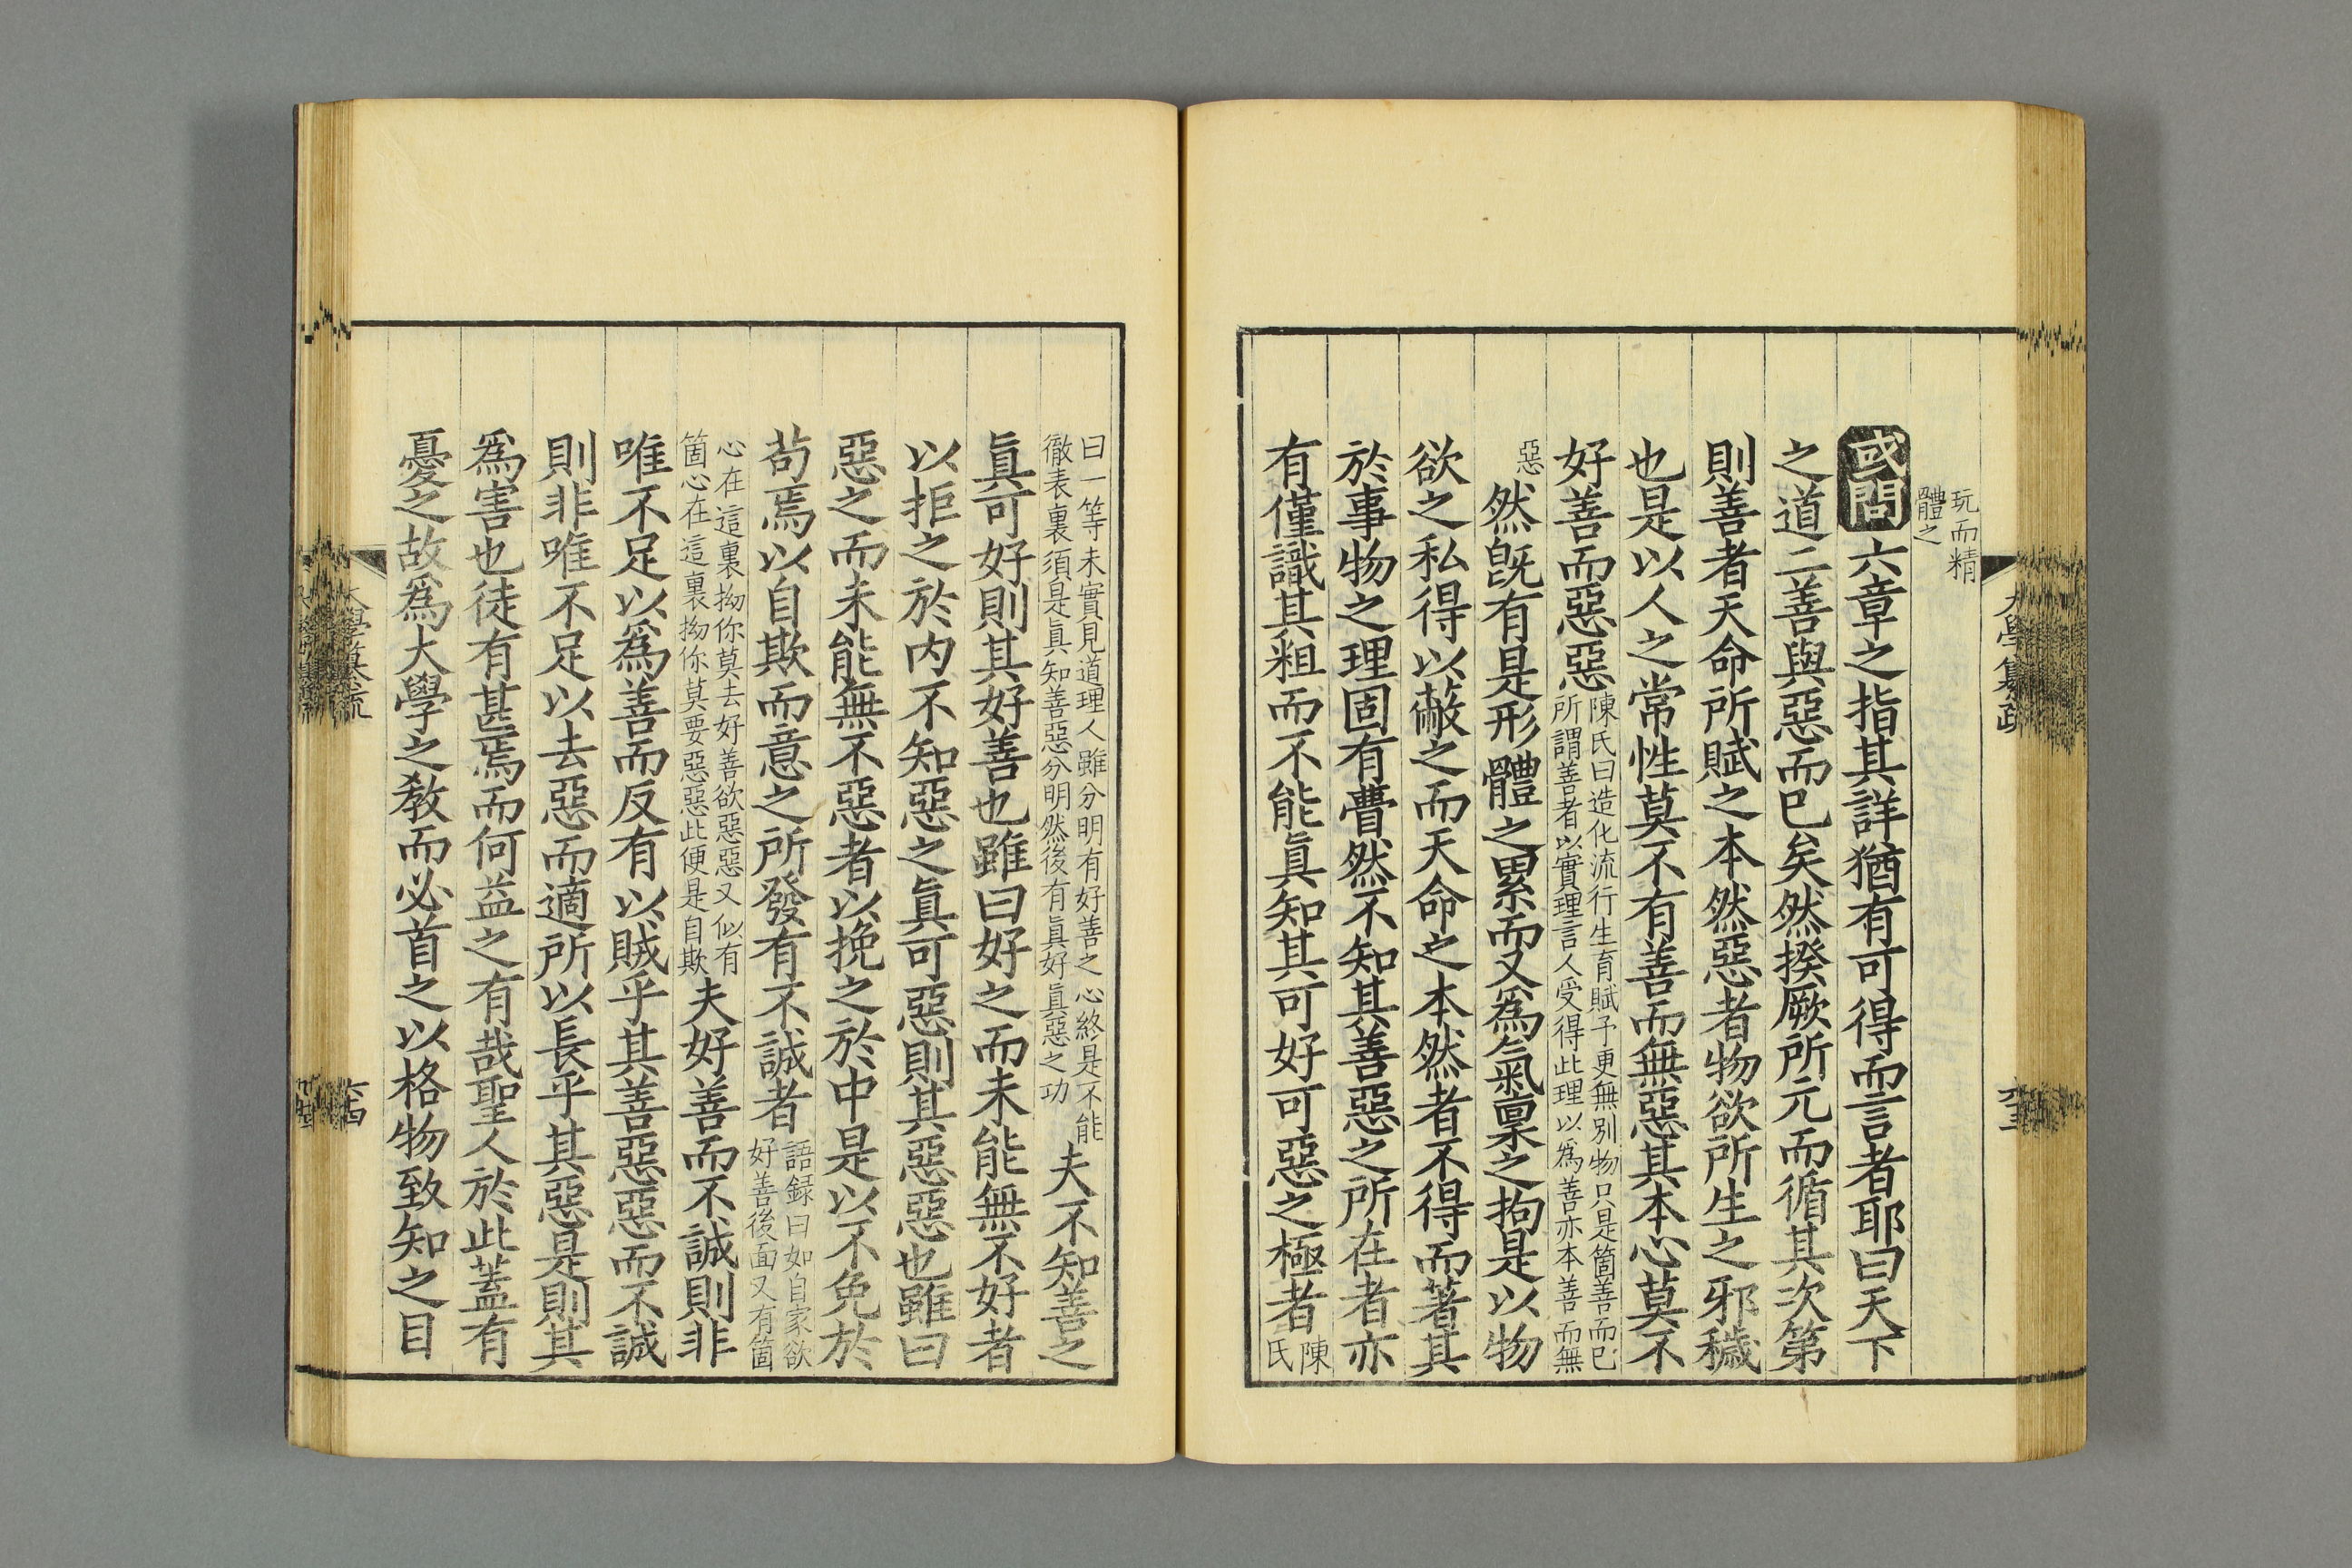 玩而精
體之
或問六章之指其詳猶有可得而言者耶曰天下
之道二善與惡而已矣然揆厥所元而循其次第
則善者天命所賦之本然惡者物欲所生之邪穢
也是以人之常性莫不有善而無惡其本心莫不
好善而惡惡
陳氏曰造化流行生育賦予更無別物只是箇善而已
所謂善者以實理言人受得此理以爲善亦本善而無
惡
然旣有是形體之累而又爲氣稟之拘是以物
欲之私得以蔽之而天命之本然者不得而著其
於事物之理固有瞢然不知其善惡之所在者亦
有僅識其粗而不能眞知其可好可惡之極者
陳
氏
曰一等未實見道理人雖分明有好善之心終是不能
徹表裏須是眞知善惡分明然後有眞好眞惡之功
夫不知善之
眞可好則其好善也雖曰好之而未能無不好者
以拒之於內不知惡之眞可惡則其惡惡也雖曰
惡之而未能無不惡者以挽之於中是以不免於
苟焉以自欺而意之所發有不誠者
語録曰如自家欲
好善後面又有箇
心在這裏拗你莫去好善欲惡惡又似有
箇心在這裏拗你莫要惡惡此便是自欺
夫好善而不誠則非
唯不足以爲善而反有以賊乎其善惡惡而不誠
則非唯不足以去惡而適所以長乎其惡是則其
爲害也徒有甚焉而何益之有哉聖人於此蓋有
憂之故爲大學之教而必首之以格物致知之目
大學纂疏